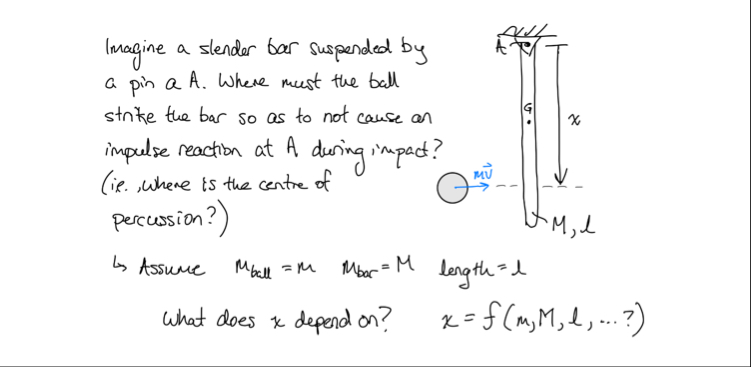 Imagine a slender bar suspended by
a pin a A. Where must the ball
strike the bar so as to not cause an
impulse reaction at A during impact?
(ie., where is the centre of
percussion?)
A
G
x
mv⃗
M, l
↳ Assume m_ball = m  m_bar = M  length = l
What does x depend on?  x = f(m, M, l, ...?)